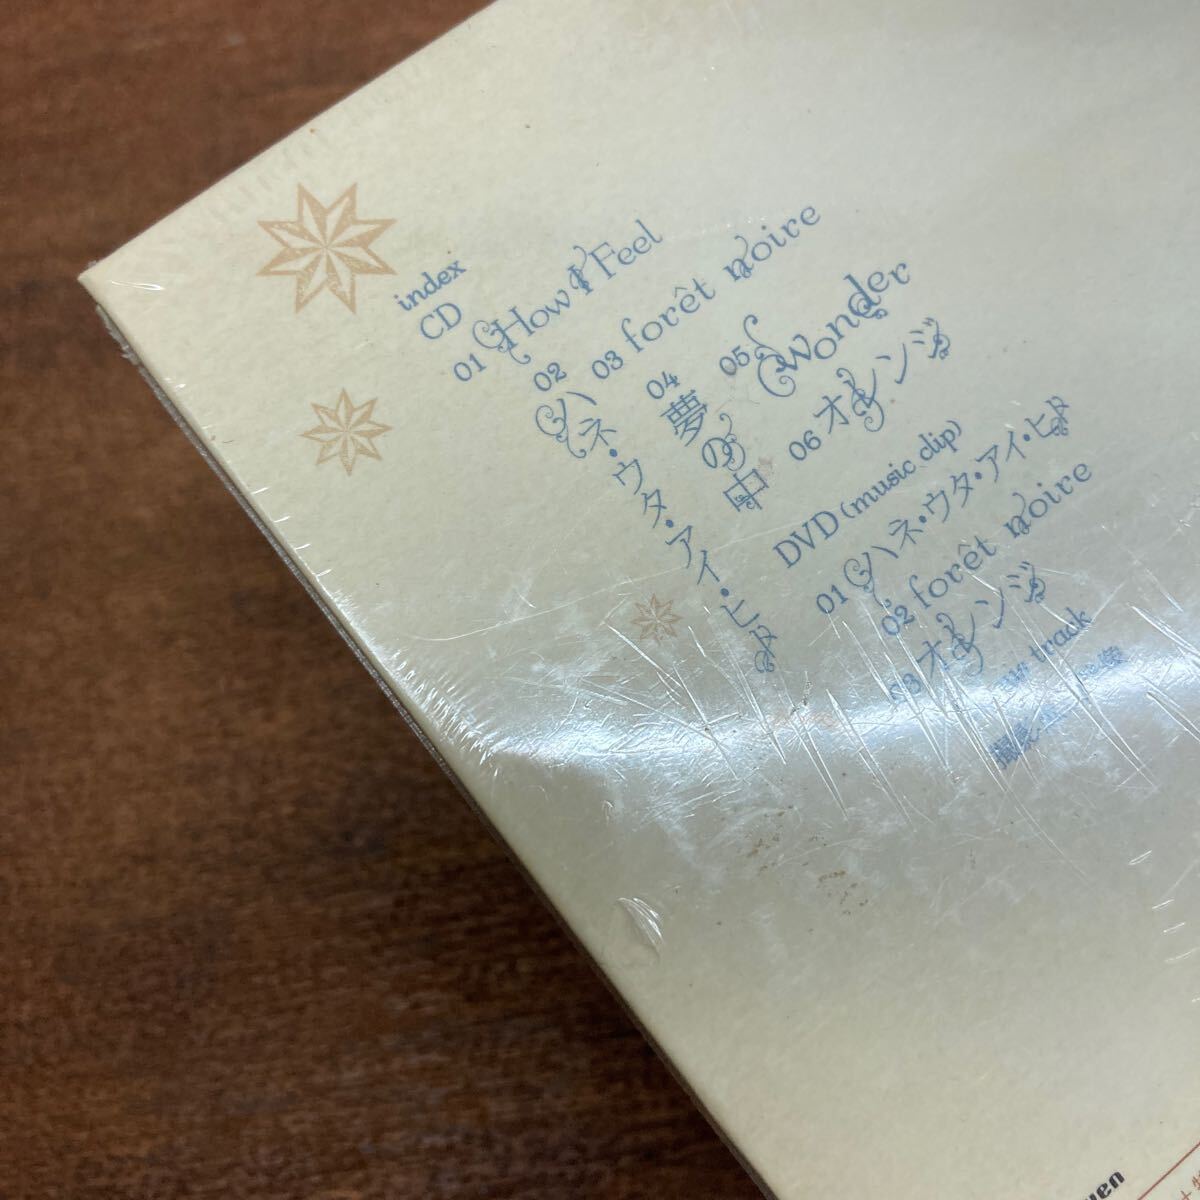 index
CD
01 How I Feel
02 ハネ・ウタ・アイ・ヒメ
03 forêt noire
04 夢の中
05 Wonder
06 オレンジ
DVD (music clip)
01 ハネ・ウタ・アイ・ヒメ
02 forêt noire
03 オレンジ
track